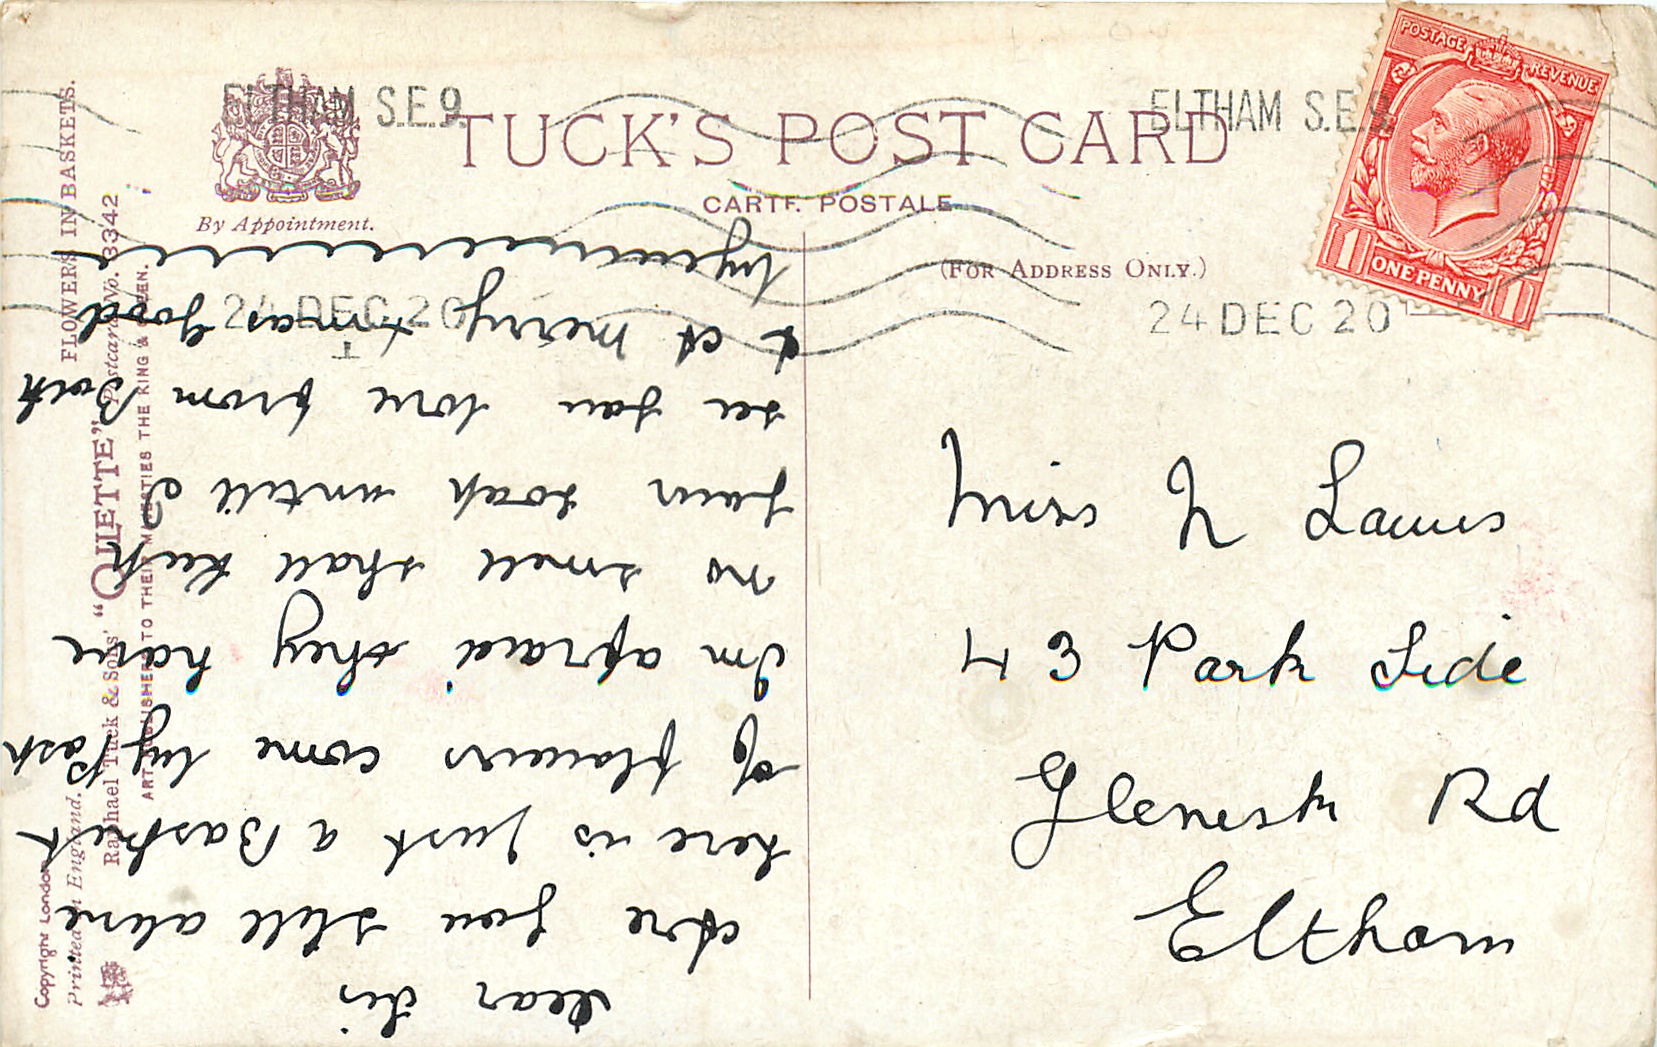 ELTHAM S.E.9.
24 DEC 20
ELTHAM S.E.9.
24 DEC 20
POSTAGE REVENUE
1 ONE PENNY 1
TUCK'S POST CARD
CARTE POSTALE
By Appointment.
(FOR ADDRESS ONLY.)
FLOWERS IN BASKETS.
Raphael Tuck & Sons' "OILETTE" Postcard No. 3342
ART PUBLISHERS TO THEIR MAJESTIES THE KING & QUEEN.
Copyright London
Printed in England.
Dear Sis
Are you still alive
here is Just a Basket
of flowers come by Post
Im afraid they have
no smell shall keep
your soap untill I
see you love from Both
& A merry Xmas good
bye
Miss N Lawes
43 Park Side
Glenesk Rd
Eltham